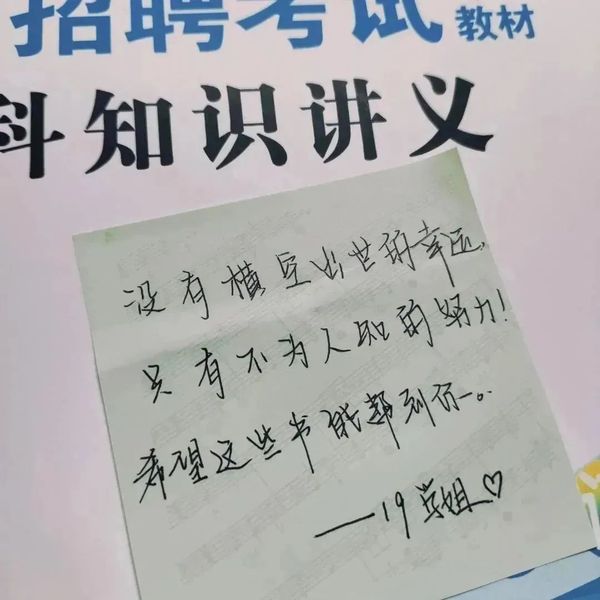 招聘考试 教材
科知识讲义
没有横空出世的幸运,
只有不为人知的努力!
希望这些书能帮到你~。
——19学姐♡